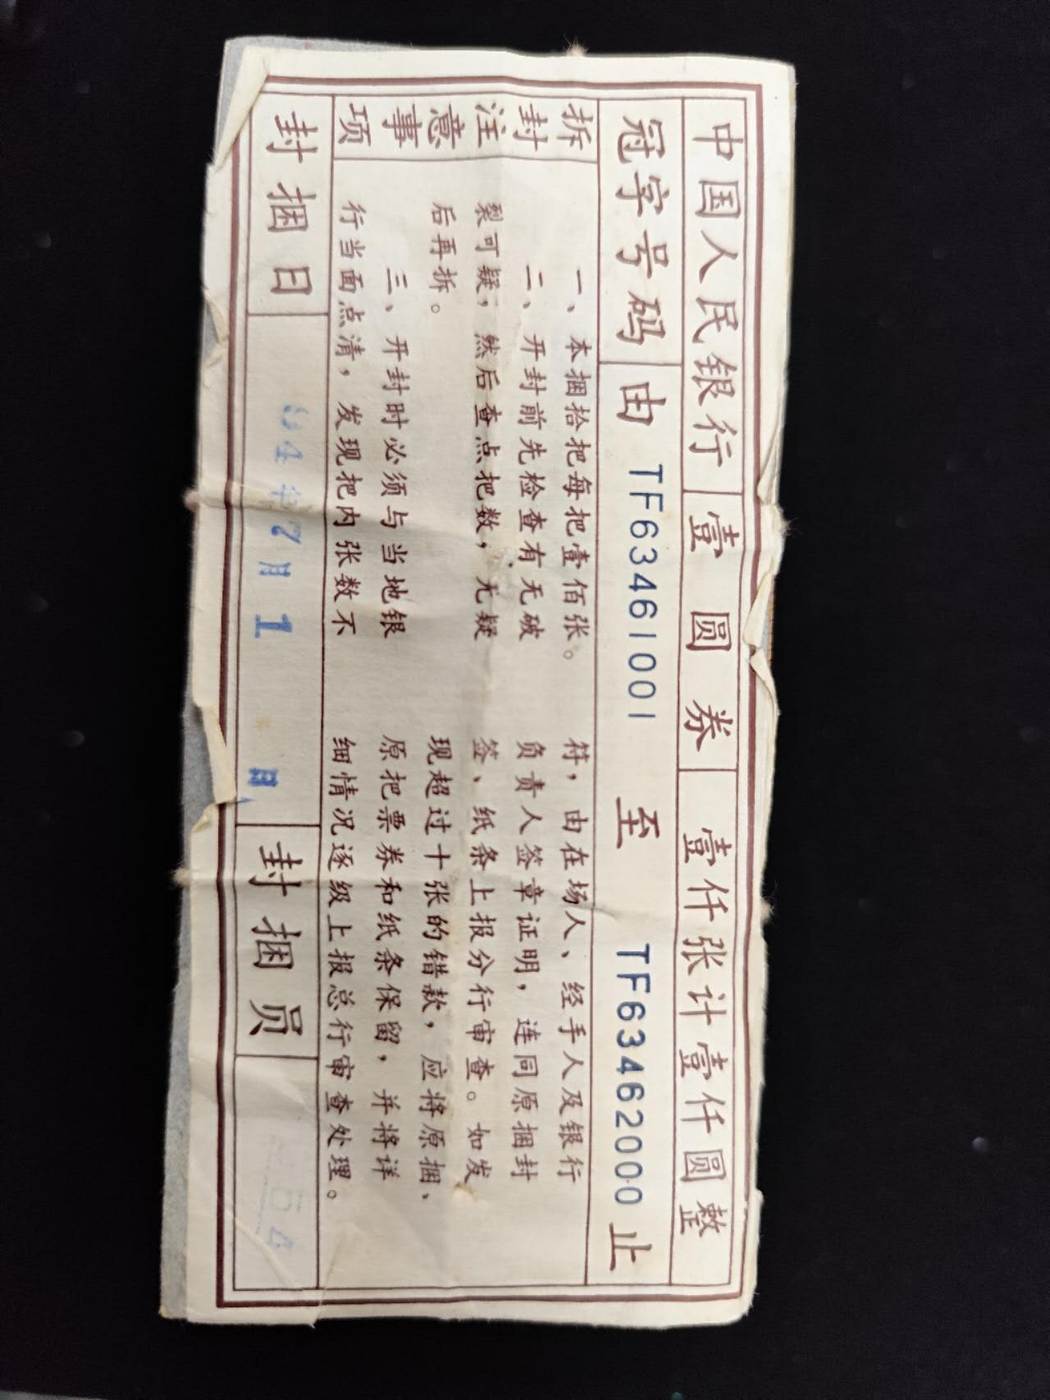 中国人民银行 壹圆券 壹仟张计壹仟圆整
冠字号码 由 TF63461001 至 TF63462000 止
拆封注意事项
一、本捆拾把每把壹佰张。
二、开封前先检查有无破
裂可疑，然后查点把数，无疑
后再拆。
三、开封时必须与当地银
行当面点清，发现把内张数不
符，由在场人、经手人及银行
负责人签章证明，连同原捆封
签、纸条上报分行审查。如发
现超过十张的错款，应将原捆、
原把票券和纸条保留，并将详
细情况逐级上报总行审查处理。
封捆日 年7月1日 封捆员